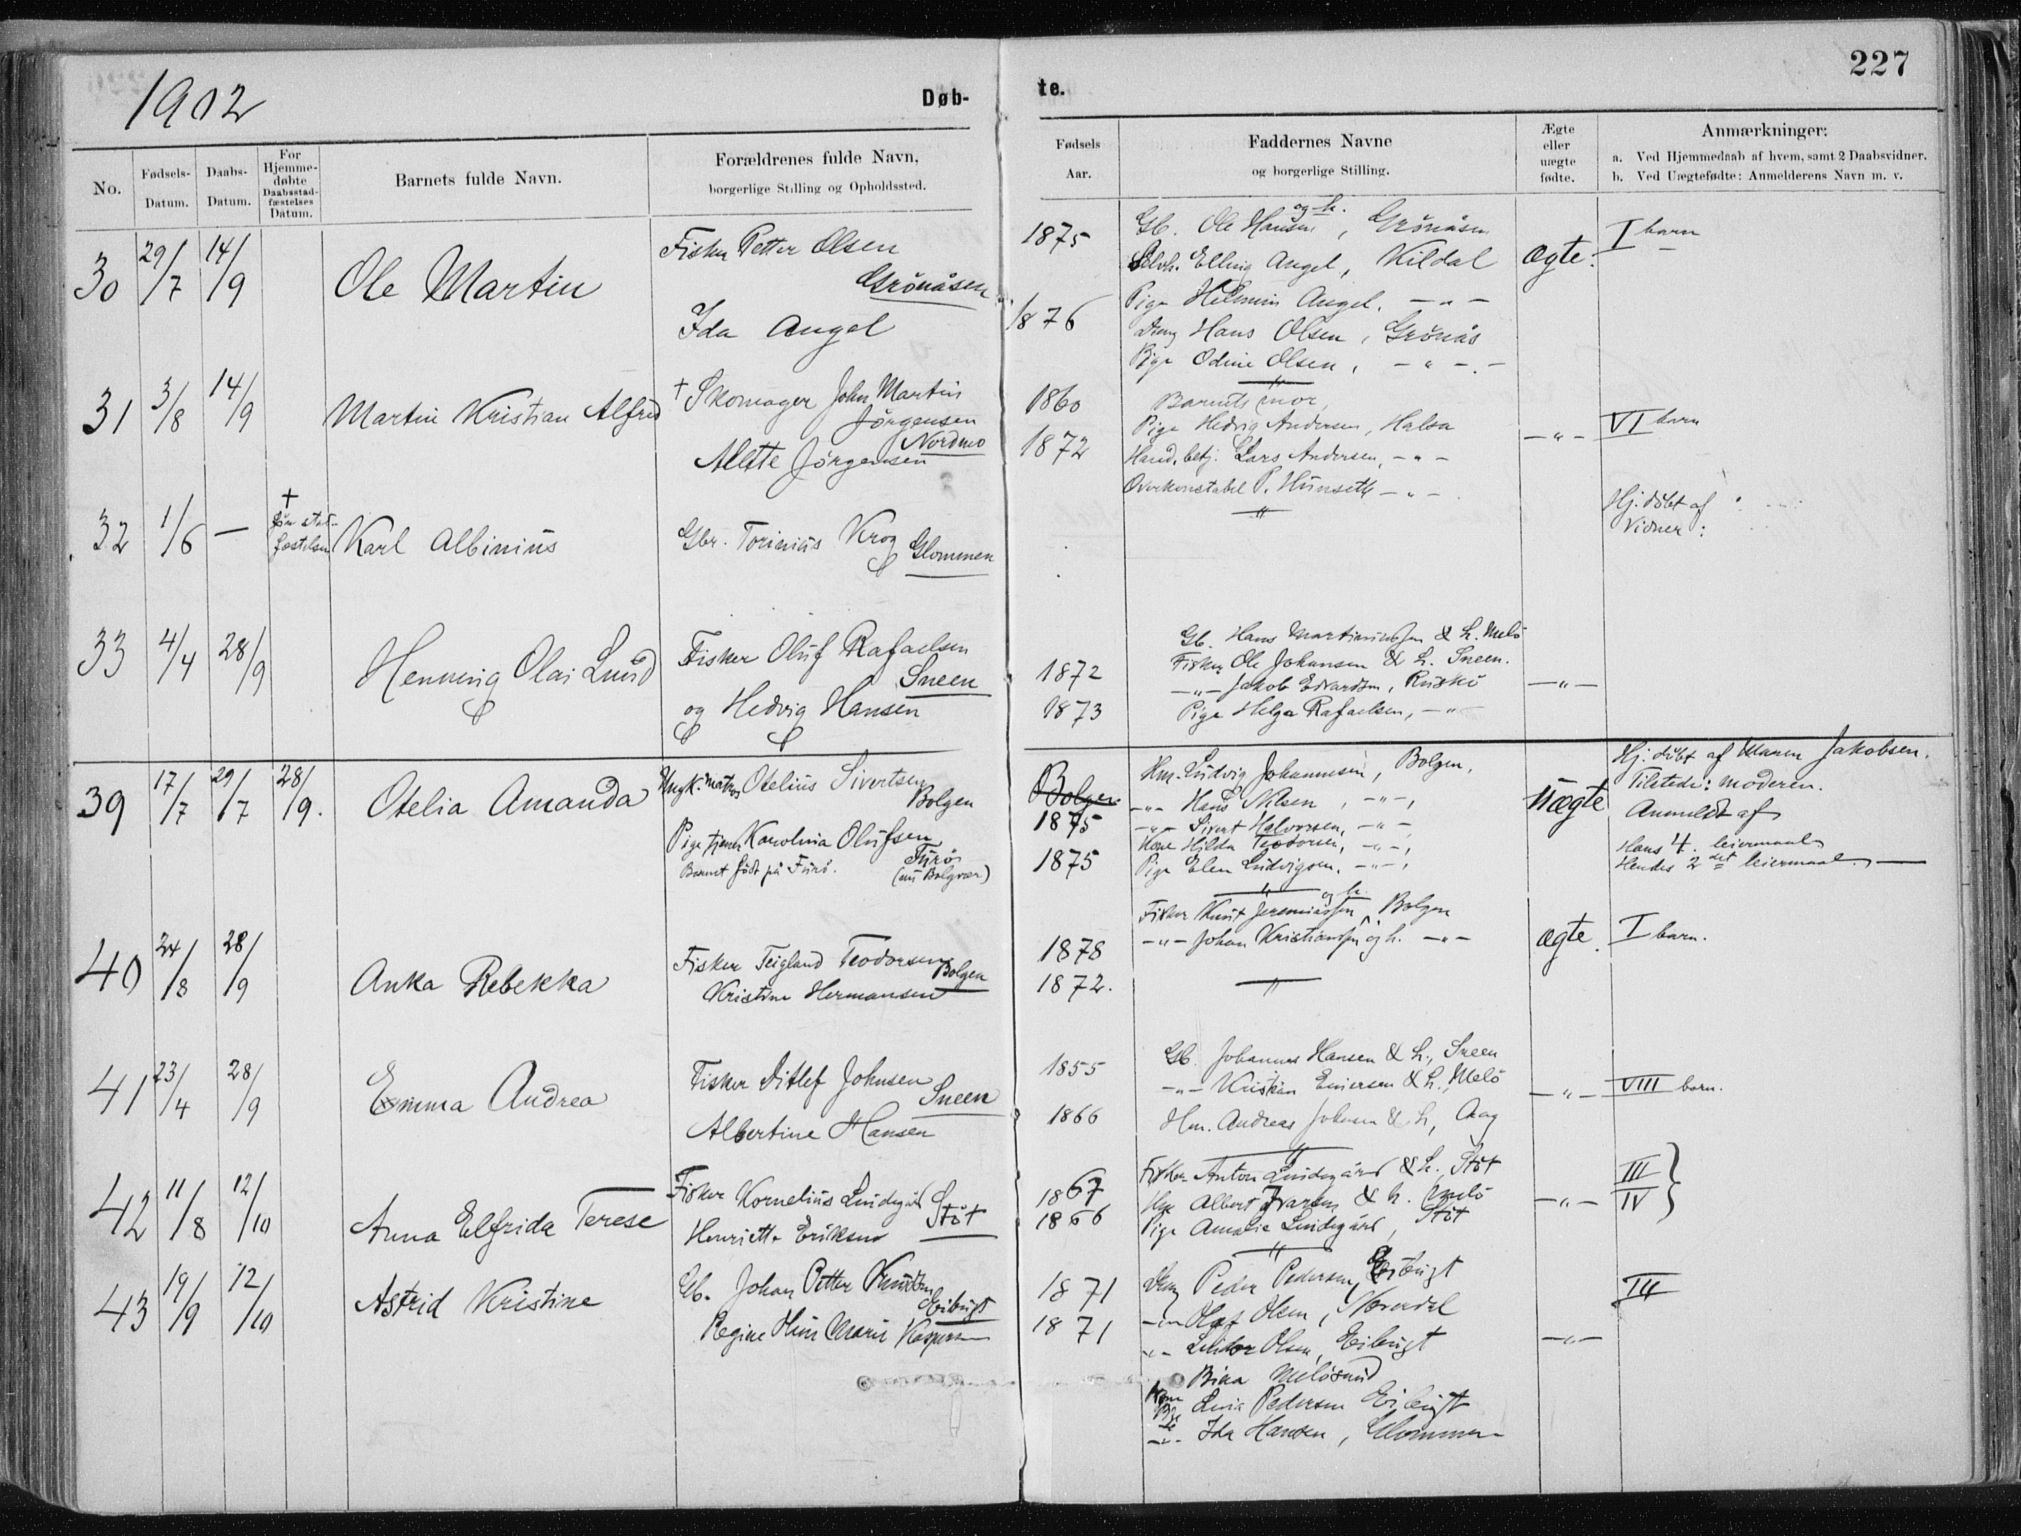 1902
Døb-
te.
227
No.
Fødsels-
Datum.
Daabs-
Datum.
For
Hjemme-
døbte
Daabsstad-
fæstelses
Datum.
Barnets fulde Navn.
Forældrenes fulde Navn,
borgerlige Stilling og Opholdssted.
Fødsels
Aar.
Faddernes Navne
og borgerlige Stilling.
Ægte
eller
uægte
fødte.
Anmærkninger:
a. Ved Hjemmedaab af hvem, samt 2 Daabsvidner.
b. Ved Uægtefødte: Anmelderens Navn m. v.
30 29/7 14/9 Ole Martin
Fisker Petter Olsen
Grönåsen
Ida Angel
1875
1876
og h.
Gb. Ole Hansen, Grönåsen
Selvh. Elling Angel, Kildal
Pige Helmin Angel, -"-
Dreng Hans Olsen, Grönås
Pige Odine Olsen, -"-
"
Ægte.
I barn
31 3/8 14/9 Martin Kristian Alfred
+ Skomager John Martin
Jørgensen
Nordmo
Alette Jørgensen
1860
1872
Barnets mor,
Pige Hedvig Andersen, Halsa
Hand.betj. Lars Andersen, -"-
Overkonstabel P. Hunseth -"-
"
-"-
VI barn
32 1/6 -
+
før stad-
fæstelsen
Karl Albinius
Gbr. Torinius Krog
Glommen
Hj. døbt af
Vidner:
33 4/4 28/9 Henning Olai Lund
Fisker Oluf Rafaelsen
Sneen
og Hedvig Hansen
1872
1873
Gb. Hans Martinussen & h. Melö
Fisker Ole Johansen & h. Sneen.
-"- Jakob Edvardsen, Ruskö
Pige Helga Rafaelsen, -"-
-"-
39 17/7 29/7 28/9. Otelia Amanda
Ungk. matros Otelius Sivertsen
Bolgen
Pige tjener Karolina Olufsen
Furö
Barnet født på Furö.
(nu Bolgvær)
Bolgen
1875
1875
Hm. Ludvig Johannesen, Bolgen,
-"- Hans Nilsen, -"-,
-"- Sivert Halvorsen, -"-,
Kone Hilda Teodorsen, -"-,
Pige Elen Ludvigsen, -"-,
"
Uægte
Hj. döbt af Maren Jakobsen.
Tilstede: moderen.
Anmeldt af
Hans 4. leiermaal
Hendes 2det leiermaal
40 24/8 28/9 Anka Rebekka
Fisker Teigland Teodorsen
Bolgen
Kristine Hermansen
1878
1872.
og h.
Fisker Knut Jeremiassen, Bolgen
-"- Johan Kristiansen og h. -"-
"
Ægte.
I barn.
41 23/4 28/9 Emma Andrea
Fisker Ditlef Johnsen
Sneen
Albertine Hansen
1855
1866
Gb. Johannes Hansen & h., Sneen
-"- Kristian Einersen & h., Melö
Hm. Andreas Johnsen & h, Aag
"
-"-
VIII barn.
42 11/8 12/10 Anna Elfrida Terese
Fisker Kornelius Lindegård
Stöt
Henriette Eriksen
1867
1866
Fisker Anton Lindegård & h., Stöt
Albert Ivarsen & h. Melö
Pige Amalia Lindegård, Stöt
"
-"-
III
IV }
43 19/9 12/10 Astrid Kristine
Gb. Johan Petter Knudsen
Eibugt
Regine Marie
1871
1871
Peder Pedersen, Eibugt
-"- Olaf Olsen,
-"- Olsen, Eibugt
Melösund
Kone Pedersen Eibugt
-"- Ida Hansen, Glommen
-"-
III